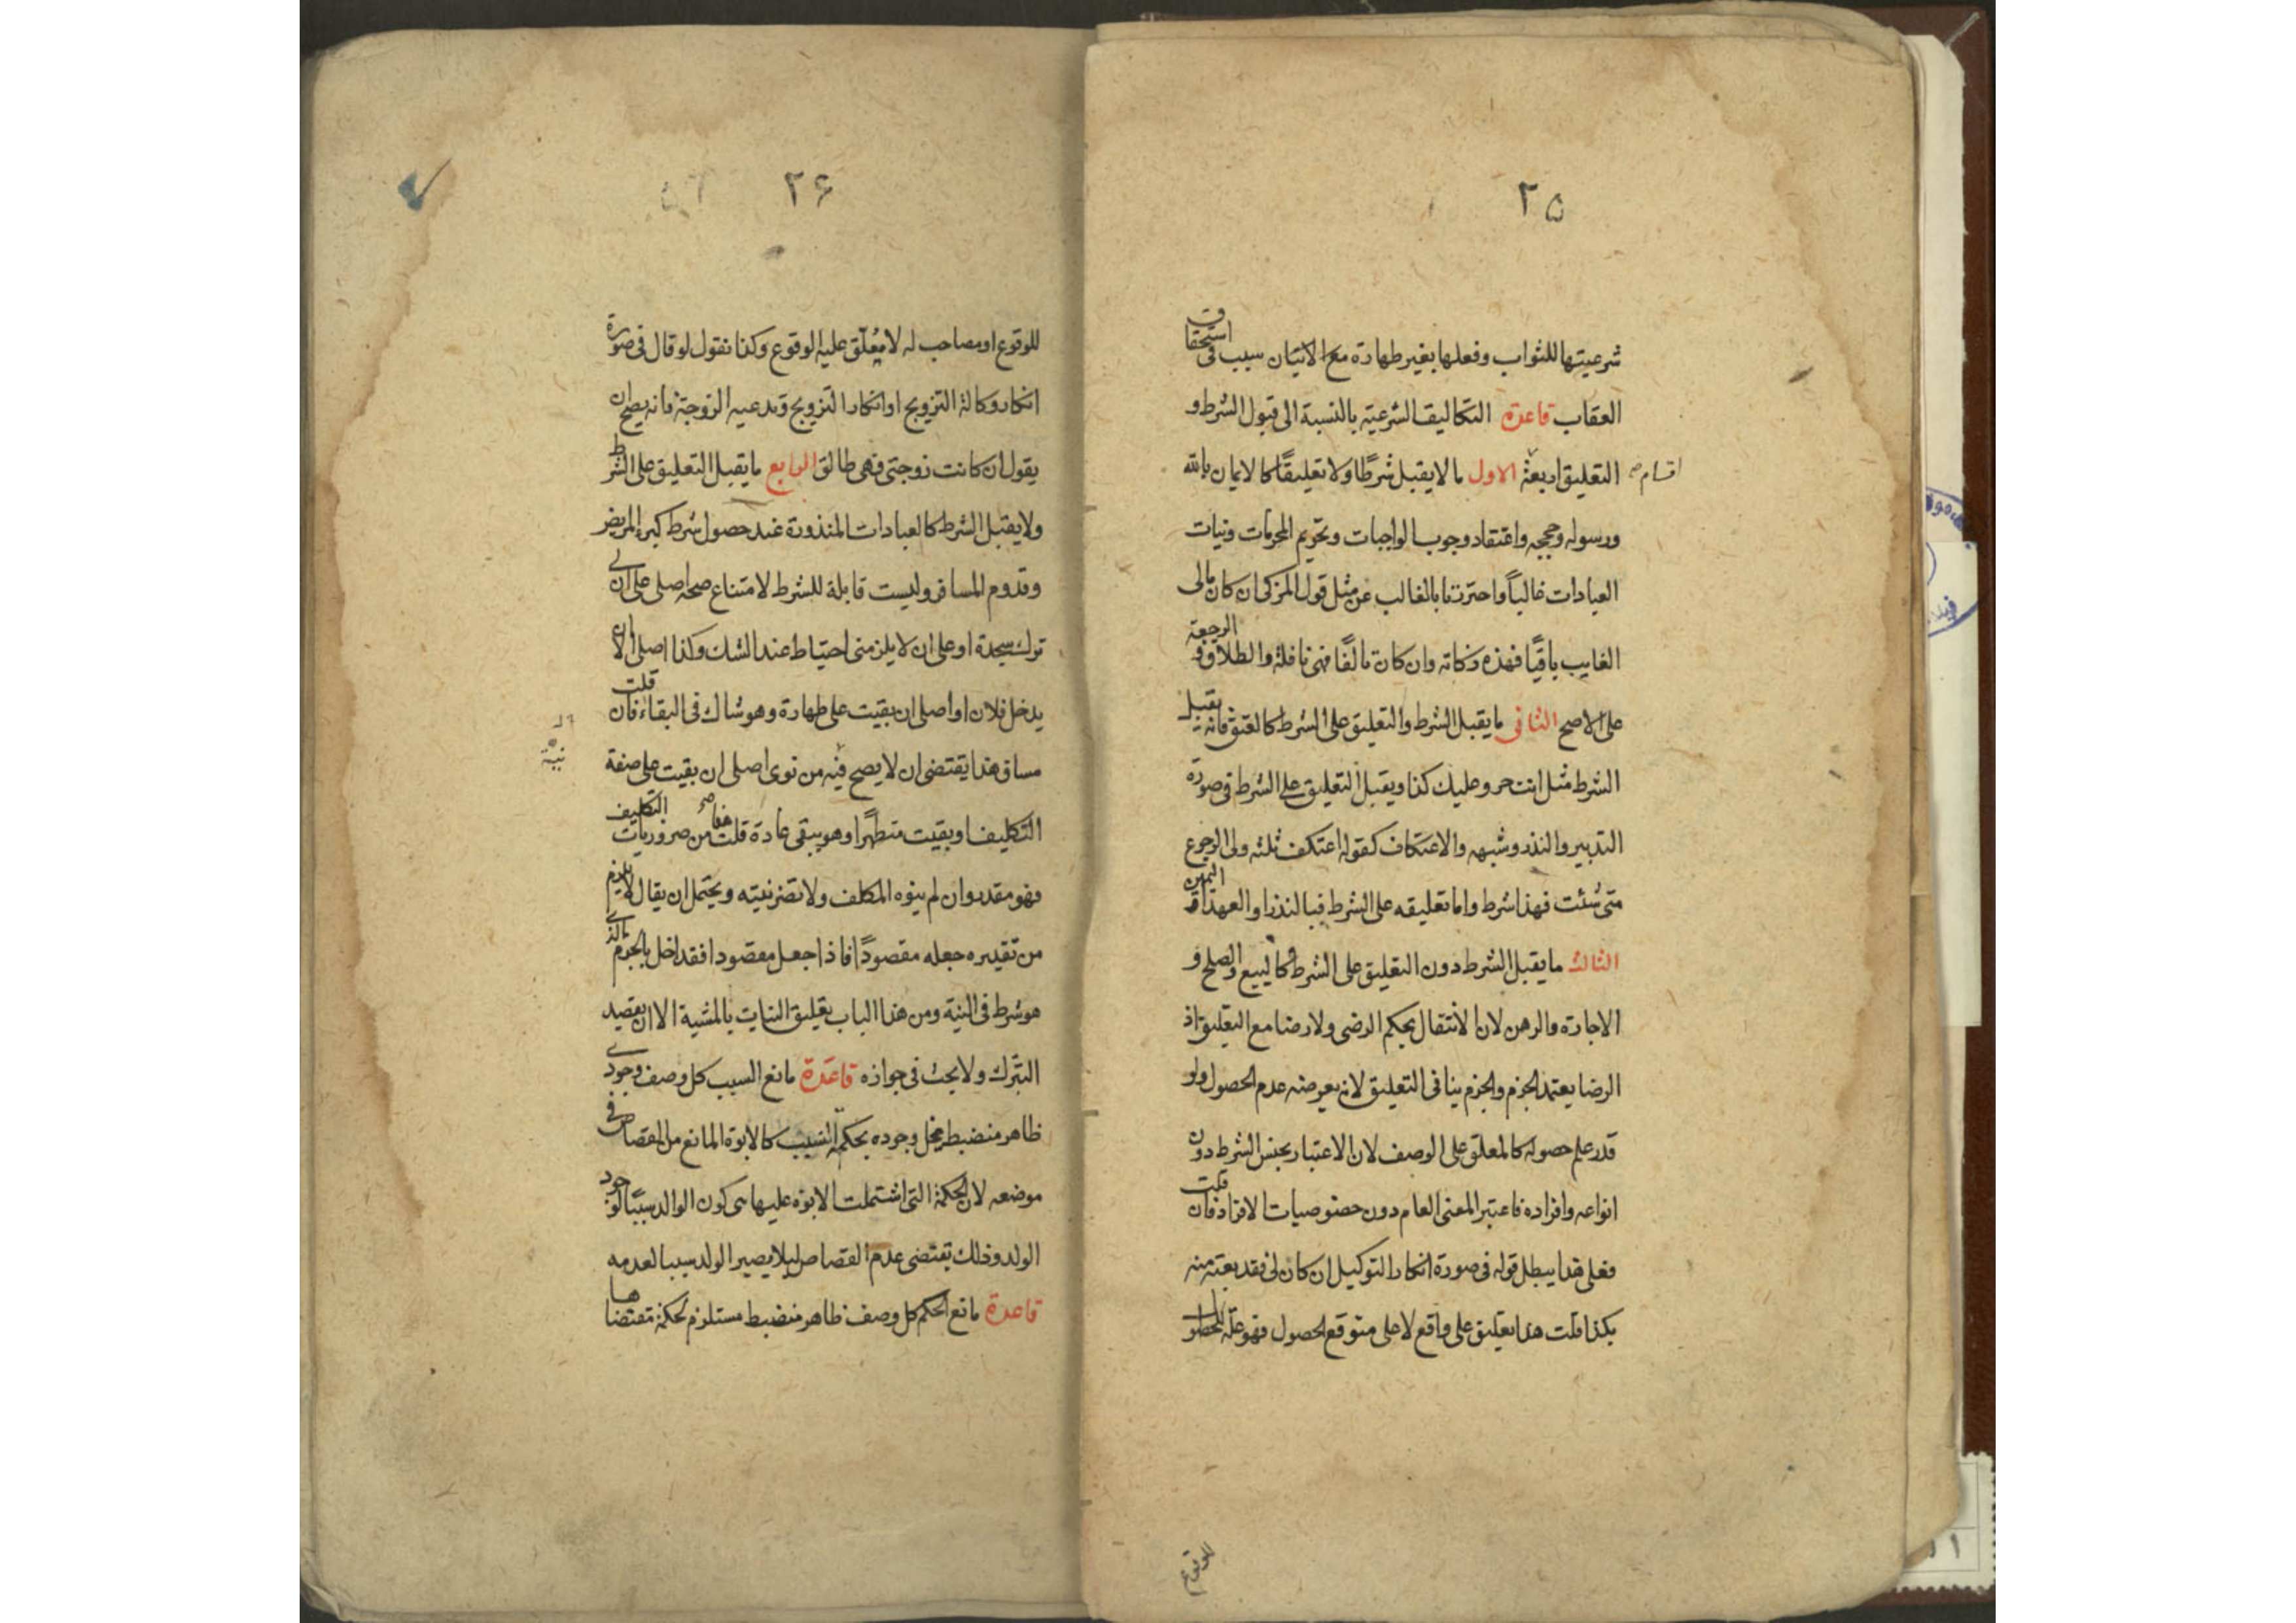 ٢٥
شرعيتها للثواب وفعلها بغير طهارة مع الاتيان سبب فى استحقاق
العقاب قاعدة التكاليف الشرعية بالنسبة الى قبول الشرط و
التعليق اربعة الاول ما لا يقبل شرطًا ولا تعليقًا كالايمان بالله
اقسام صح
ورسوله وحججه واعتقاد وجوب الواجبات وتحريم المحرمات ونيات
العبادات غالباً واحترزنا بالغالب عن مثل قول المزكى ان كان مالى
الغايب باقيًا فهذه زكاته وان كان تالفًا فهى نافلة والطلاق و الرجعة
على الاصح الثانى ما يقبل الشرط والتعليق على الشرط كالعتق فانه يقبل
الشرط مثل انت حر وعليك كذا ويقبل التعليق على الشرط فى صورة
التدبير والنذر وشبهه والاعتكاف كقوله اعتكف ثلثه ولى الرجوع
متى شئت فهذا شرط واما تعليقه على الشرط فبالنذر او العهد او اليمين
الثالث ما يقبل الشرط دون التعليق على الشرط كالبيع والصلح و
الاجارة والرهن لان الانتقال بحكم الرضى ولا رضا مع التعليق اذ
الرضا يعتمد الجزم والجزم ينافى التعليق لانه يعرضه عدم الحصول ولو
قدر علم حصوله كالمعلق على الوصف لان الاعتبار بجنس الشرط دون
انواعه وافراده فاعتبر المعنى العام دون خصوصيات الافراد فان قلت
فعلى هذا يبطل قوله فى صورة انكار التوكيل ان كان لى فقد بعته منه
بكذا قلت هذا تعليق على واقع لا على متوقع الحصول فهو علة
للوقوع
٢۶
للوقوع او مصاحب له لا معلق عليه الوقوع وكذا نقول لو قال فى صورة
انكار وكالة التزويج او انكار التزويج وتدعيه الزوجة فانه يصح ان
يقول ان كانت زوجتى فهى طالق الرابع ما يقبل التعليق على الشرط
ولا يقبل الشرط كالعبادات المنذورة عند حصول شرط كبرء المريض
وقدوم المسافر وليست قابلة للشرط لامتناع صحه اصلى على ان لى
ترك سجدة او على ان لا يلزمنى احتياط عند الشك وكذا اصلى الا ان
يدخل فلان او اصلى ان بقيت على طهارة وهو شاك فى البقاء فان قلت
مساق هذا يقتضى ان لا يصح فيه من نوى اصلى ان بقيت على صفة
نيّة
التكليف او بقيت متطهرا وهو يبقى عادة قلت هذا صح من ضروريات التكليف
فهو مقدر وان لم ينوه المكلف ولا تضر نيته ويحتمل ان يقال لا يلزم
من تقديره جعله مقصودًا فاذا جعل مقصودا فقد اخل بالجزم الذى
هو شرط فى النية ومن هذا الباب تعليق النيات بالمشية الا ان يقصد
التبرك ولا بحث فى جوازه قاعدة مانع السبب كل وصف وجودى
ظاهر منضبط يخل وجوده بحكمة السبب كالابوة المانع من القصاص فى
موضعه لان الحكمة التى اشتملت الابوه عليها هى كون الوالد سببًا لوجود
الولد وذلك يقتضى عدم القصاص لئلا يصير الولد سببا لعدمه
قاعدة مانع الحكم كل وصف ظاهر منضبط مستلزم لحكمة مقتضاها